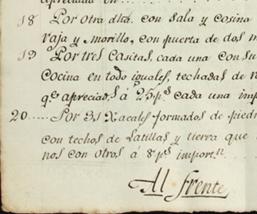 apreciada en
18 Por otra dha. con sala y cosina
raja y morillo, con puerta de dos m
19 Por tres Casitas, cada una con su
Cocina en todo iguales, techadas de
qe. apreciads. á 25 ps. cada una imp
20 .... Por 31 Xacales formados de piedr
con techos de latillas y tierra que
nos con otros á 8 ps. import.n
Al frente